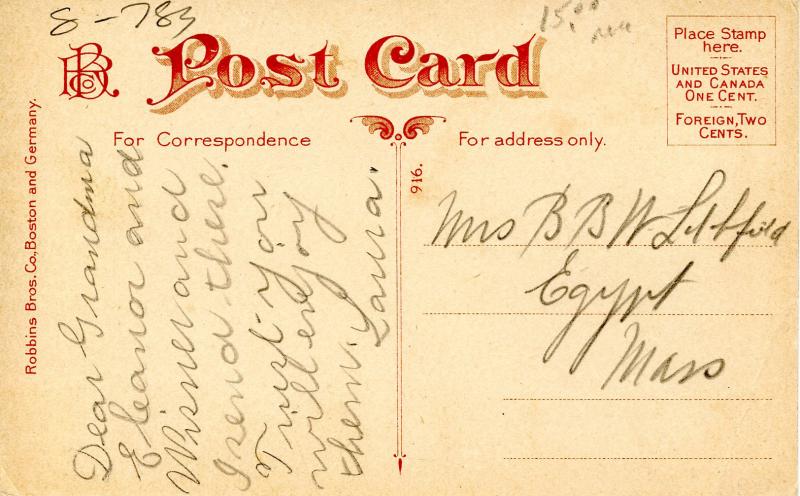 8-783
15.00
Post Card
RB Co
Place Stamp
here.
UNITED STATES
AND CANADA
ONE CENT.
FOREIGN, TWO
CENTS.
For Correspondence
For address only.
Robbins Bros. Co., Boston and Germany.
916.
Dear Grandma
Eleanor and
Wisner and
I send these.
Trust you
will enjoy
them.
Laura.
Mrs B B W Littlfield
Egypt
Mass